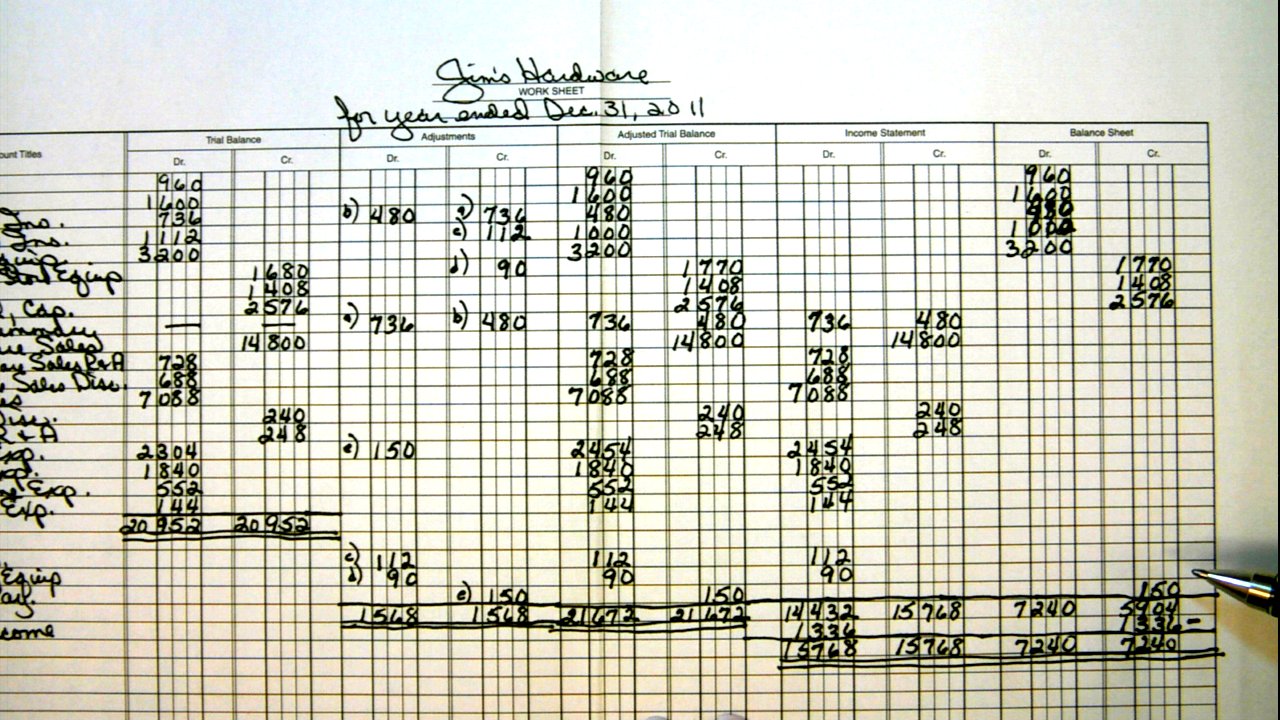 Jim's Hardware
WORK SHEET
for year ended Dec. 31, 2011
Trial Balance Adjustments Adjusted Trial Balance Income Statement Balance Sheet
ount Titles Dr. Cr. Dr. Cr. Dr. Cr. Dr. Cr. Dr. Cr.
960 960 960
1600 1600 1600
Ins. 736 b) 480 a) 736 480 480
Ins. 1112 c) 112 1000 1000
quip. 3200 3200 3200
Store Equip 1680 d) 90 1770 1770
1408 1408 1408
, Cap. 2576 2576 2576
ummary — — a) 736 b) 480 736 480 736 480
Sales 14800 14800 14800
Sales R+A 728 728 728
Sales Disc. 688 688 688
es 7088 7088 7088
Disc. 240 240 240
R + A 248 248 248
Exp. 2304 e) 150 2454 2454
Exp. 1840 1840 1840
Exp. 552 552 552
Exp. 144 144 144
20952 20952
c) 112 112 112
Equip d) 90 90 90
ay. e) 150 150 150
1568 1568 21672 21672 14432 15768 7240 5904
come 1336 1336 –
15768 15768 7240 7240